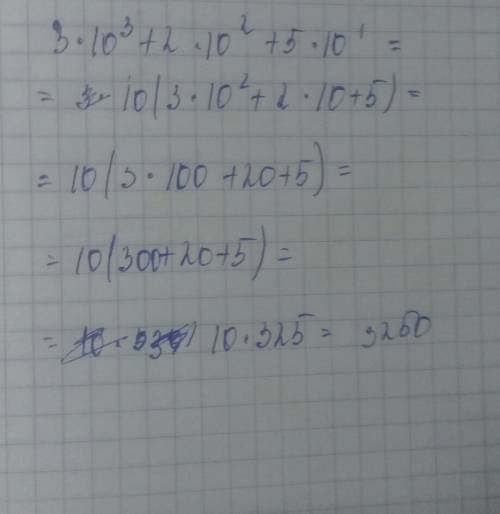 3·10³+2·10²+5·10¹=
= 10(3·10²+2·10+5)=
= 10(3·100+20+5)=
= 10(300+20+5)=
= 10·325= 3250